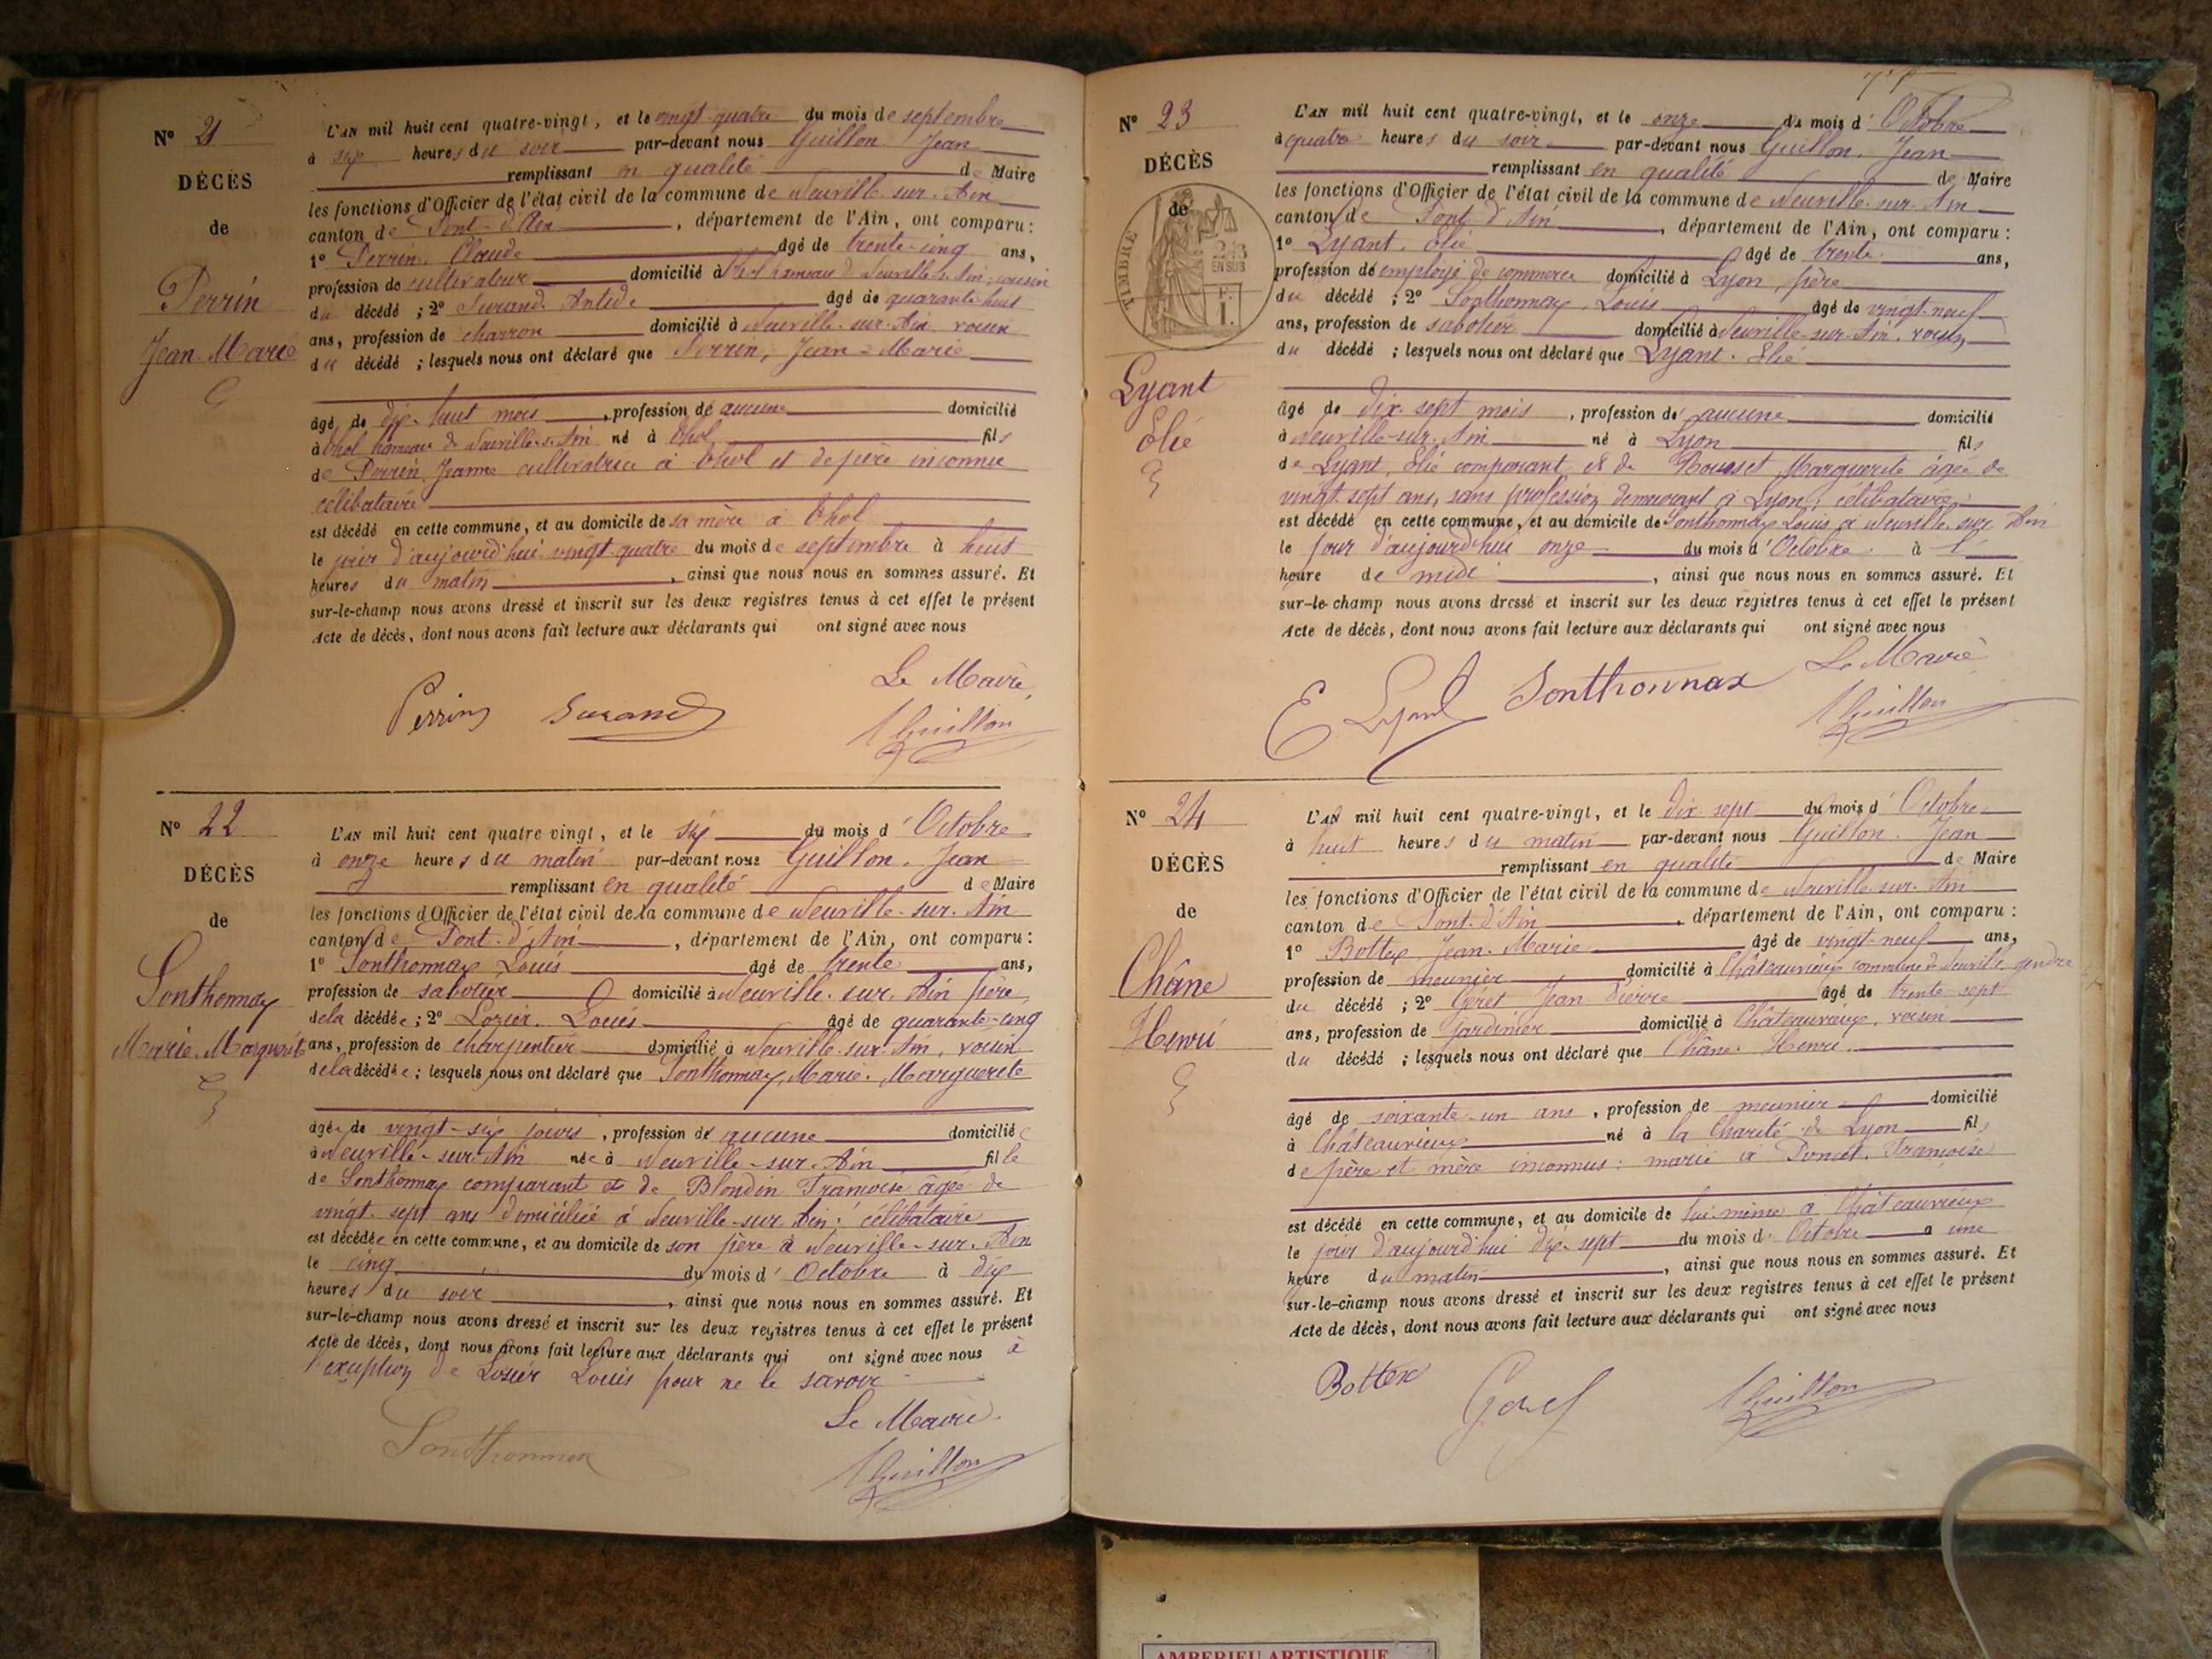 N° 21
DÉCÈS
de
Perrin
Jean-Marie
L'AN mil huit cent quatre-vingt, et le vingt-quatre du mois de septembre
à six heures du soir par-devant nous Guillon Jean
remplissant en qualité de Maire
les fonctions d'Officier de l'état civil de la commune de Neuville-sur-Ain
canton de Pont-d'Ain, département de l'Ain, ont comparu :
1° Perrin Claude âgé de trente-cinq ans,
profession de cultivateur domicilié à Thol hameau de Neuville s. Ain, cousin
du décédé ; 2° Durand Antide âgé de quarante huit
ans, profession de charron domicilié à Neuville-sur-Ain voisin
du décédé ; lesquels nous ont déclaré que Perrin, Jean-Marie
âgé de dix-huit mois, profession de aucune domicilié
à Thol hameau de Neuville-s-Ain né à Thol fils
de Perrin Jeanne cultivatrice à Thol et de père inconnu
célibataire
est décédé en cette commune, et au domicile de sa mère à Thol
le jour d'aujourd'hui vingt-quatre du mois de septembre à huit
heures du matin, ainsi que nous nous en sommes assuré. Et
sur-le-champ nous avons dressé et inscrit sur les deux registres tenus à cet effet le présent
Acte de décès, dont nous avons fait lecture aux déclarants qui ont signé avec nous
Le Maire,
Perrin Durand Guillon
N° 22
DÉCÈS
de
Sonthonnax
Marie-Marguerite
L'AN mil huit cent quatre vingt, et le six du mois d'Octobre
à onze heures du matin par-devant nous Guillon, Jean
remplissant en qualité de Maire
les fonctions d'Officier de l'état civil de la commune de Neuville-sur-Ain
canton de Pont-d'Ain, département de l'Ain, ont comparu :
1° Sonthonnax Louis âgé de trente ans,
profession de sabotier domicilié à Neuville-sur-Ain père
de la décédée ; 2° Lozier Louis âgé de quarante-cinq
ans, profession de charpentier domicilié à Neuville-sur-Ain, voisin
de la décédée ; lesquels nous ont déclaré que Sonthonnax, Marie-Marguerite
âgée de vingt-six jours, profession de aucune domicilié
à Neuville-sur-Ain née à Neuville-sur-Ain fille
de Sonthonnax comparant et de Blondin Françoise âgée de
vingt-sept ans domiciliée à Neuville-sur-Ain : célibataire
est décédée en cette commune, et au domicile de son père à Neuville-sur-Ain
le cinq du mois d'Octobre à dix
heures du soir, ainsi que nous nous en sommes assuré. Et
sur-le-champ nous avons dressé et inscrit sur les deux registres tenus à cet effet le présent
Acte de décès, dont nous avons fait lecture aux déclarants qui ont signé avec nous à
l'exception de Lozier Louis pour ne le savoir
Le Maire.
Sonthonnax Guillon
N° 23
DÉCÈS
de
TIMBRE
2/10
EN SUS
F.
1.
Lyant
Elie
L'AN mil huit cent quatre-vingt, et le onze du mois d'Octobre
à quatre heures du soir par-devant nous Guillon, Jean
remplissant en qualité de Maire
les fonctions d'Officier de l'état civil de la commune de Neuville-sur-Ain
canton de Pont-d'Ain, département de l'Ain, ont comparu :
1° Lyant, Elie âgé de trente ans,
profession de employé de commerce domicilié à Lyon, père
du décédé ; 2° Sonthonnax, Louis âgé de vingt-neuf
ans, profession de sabotier domicilié à Neuville-sur-Ain, voisin
du décédé ; lesquels nous ont déclaré que Lyant, Elie
âgé de dix-sept mois, profession de aucune domicilié
à Neuville-sur-Ain né à Lyon fils
de Lyant, Elie comparant et de Rousset Marguerite âgée de
vingt-sept ans, sans profession demeurant à Lyon ; célibataire
est décédé en cette commune, et au domicile de Sonthonnax Louis à Neuville-sur-Ain
le jour d'aujourd'hui onze du mois d'Octobre à l'
heure de midi, ainsi que nous nous en sommes assuré. Et
sur-le-champ nous avons dressé et inscrit sur les deux registres tenus à cet effet le présent
Acte de décès, dont nous avons fait lecture aux déclarants qui ont signé avec nous
Le Maire
E Lyant Sonthonnax Guillon
N° 24
DÉCÈS
de
Châne
Henri
L'AN mil huit cent quatre-vingt, et le dix-sept du mois d'Octobre
à huit heures du matin par-devant nous Guillon, Jean
remplissant en qualité de Maire
les fonctions d'Officier de l'état civil de la commune de Neuville-sur-Ain
canton de Pont-d'Ain, département de l'Ain, ont comparu :
1° Bottex Jean-Marie âgé de vingt-neuf ans,
profession de meunier domicilié à Châteauvieux commune de Neuville, gendre
du décédé ; 2° Géret Jean Pierre âgé de trente-sept
ans, profession de jardinier domicilié à Châteauvieux, voisin
du décédé ; lesquels nous ont déclaré que Châne Henri
âgé de soixante-un ans, profession de meunier domicilié
à Châteauvieux né à la Charité de Lyon fils
de père et mère inconnus : marié à Poncet Françoise
est décédé en cette commune, et au domicile de lui-même à Châteauvieux
le jour d'aujourd'hui dix-sept du mois d'Octobre à une
heure du matin, ainsi que nous nous en sommes assuré. Et
sur-le-champ nous avons dressé et inscrit sur les deux registres tenus à cet effet le présent
Acte de décès, dont nous avons fait lecture aux déclarants qui ont signé avec nous
Bottex Géret Guillon
AMBERIEU ARTISTIQUE